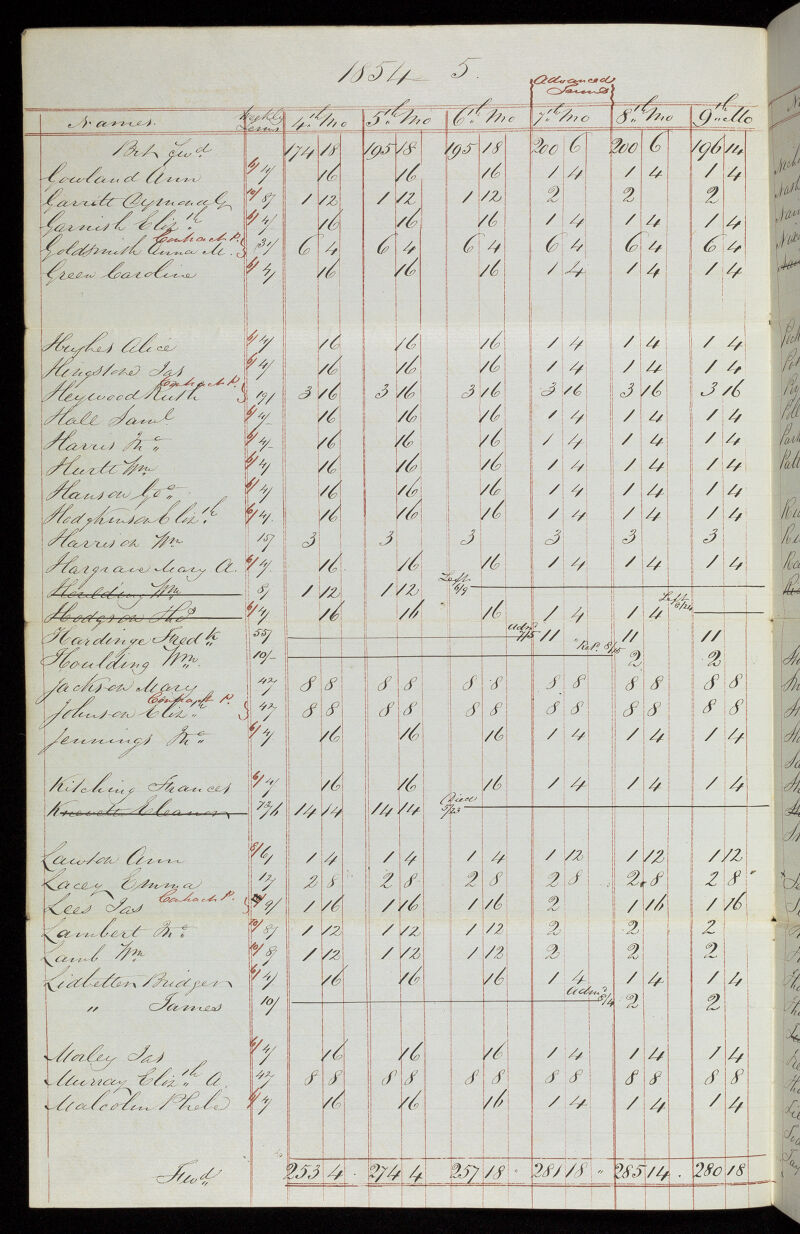 1854 5.
Advanced Terms
Names. Weekly Terms 4th Mo 5th Mo 6th Mo 7th Mo 8th Mo 9th Mo
Brt Fwd. 174 18 195 18 195 18 200 6 200 6 196 14
Gowland Ann 6/ 4/ 16 16 16 1 4 1 4 1 4
Garrett 10/ 8/ 1 12 1 12 1 12 2 2 2
Garnish Elizth 6/ 4/ 16 16 16 1 4 1 4 1 4
Contract P.
Goldsmith Anna M. 31/ 6 4 6 4 6 4 6 4 6 4 6 4
Green Caroline 6/ 4/ 16 16 16 1 4 1 4 1 4
Hughes Alice 6/ 4/ 16 16 16 1 4 1 4 1 4
Kingstone Jas 6/ 4/ 16 16 16 1 4 1 4 1 4
Contract P.
Heywood Ruth 19/ 3 16 3 16 3 16 3 16 3 16 3 16
Hall Saml 6/ 4/ 16 16 16 1 4 1 4 1 4
Harris Jno 6/ 4/ 16 16 16 1 4 1 4 1 4
Hurtt Wm 6/ 4/ 16 16 16 1 4 1 4 1 4
Hanson Geo 6/ 4/ 16 16 16 1 4 1 4 1 4
Hodgkinson Elizth 6/ 4/ 16 16 16 1 4 1 4 1 4
Harrison Wm 15/ 3 3 3 3 3 3
Hargrave Mary A. 6/ 4/ 16 16 16 1 4 1 4 1 4
Houlding Wm 8/ 1 12 1 12 Left 6/9
Hodgson Thos 6/ 4/ 16 16 16 1 4 1 4 Left 8/24
Hardinge Fredk 55/ Admd 7/15 11 11 11
Houlding Wm. 10/- ReA. 8/15 2 2
Jackson Mary 42/ 8 8 8 8 8 8 8 8 8 8 8 8
Contract P.
Johnson Elizth 42/ 8 8 8 8 8 8 8 8 8 8 8 8
Jennings Jno 6/ 4/ 16 16 16 1 4 1 4 1 4
Kitching Frances 6/ 4/ 16 16 16 1 4 1 4 1 4
Knevett Eleanor 73/6 14 14 14 14 Died 5/23
Lawton Ann 8/ 6/ 1 4 1 4 1 4 1 12 1 12 1 12
Lacey Emma 12/ 2 8 2 8 2 8 2 8 2 8 2 8
Contract P.
Lees Jas 9/ 1 16 1 16 1 16 2 1 16 1 16
Lambert Jno 10/ 8/ 1 12 1 12 1 12 2 2 2
Lamb Wm 10/ 8/ 1 12 1 12 1 12 2 2 2
Lidbetter Bridger 6/ 4/ 16 16 16 1 4 1 4 1 4
" James 10/ Admd 8/4 2 2
Morley Jas 6/ 4/ 16 16 16 1 4 1 4 1 4
Murray Elizth A. 42/ 8 8 8 8 8 8 8 8 8 8 8 8
Malcolm Phebe 6/ 4/ 16 16 16 1 4 1 4 1 4
Fwd 253 4 274 4 257 18 281 18 285 14 280 18